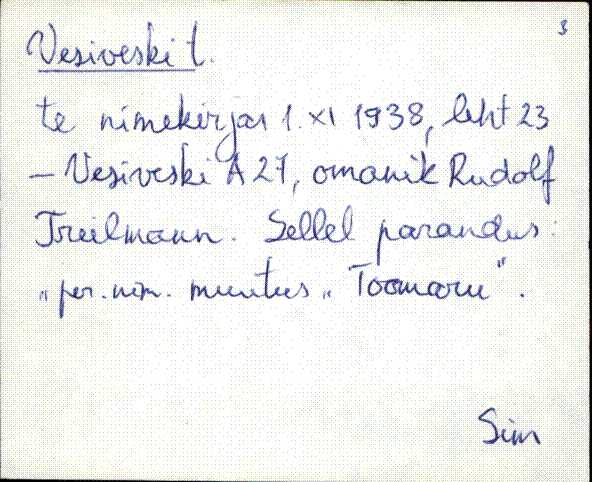 3
Vesiveski t.
te nimekirjas 1. XI 1938, leht 23
– Vesiveski A 27, omanik Rudolf
Treilmann. Sellel parandus:
„per. nim. muutus „Toomaru".
Sim